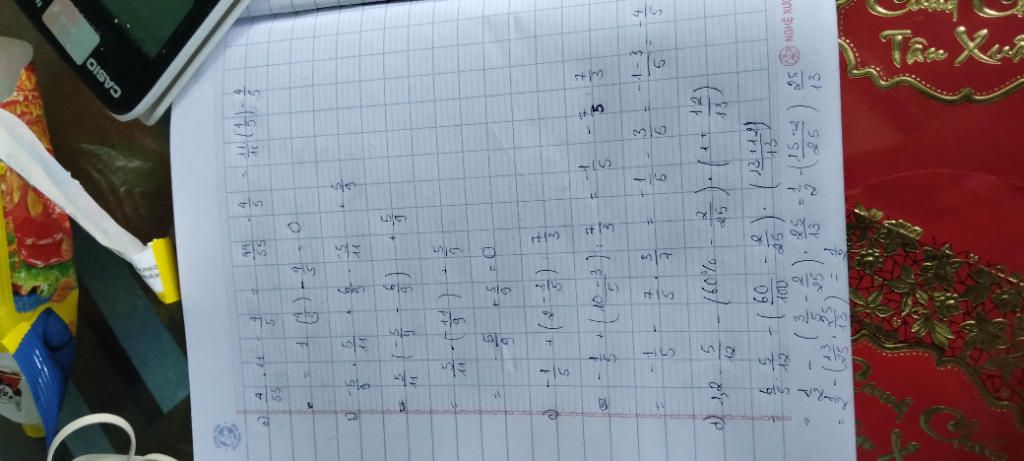 a) 4/55 . 11 - 4/5 = 44/55 - 4/5 = 11/11 (4/5) - 4/5
= 1 (4/5) - 4/5 = 0
b) -5/9 . 5/11 + 6/9 . -5/11 + 5/9
= 5/11 (-5/9 - 6/9) + 5/9
= 5/11 . (-11/9) + 5/9
= -5/9 + 5/9 = 0
c) -1/5 + (2 - 3/5) : 7/3
= -1/5 + (10 - 3/5) : 7/3 = -1/5 - 7/5 : 7/3
= -1/5 - 7/5 . 3/7 = -1/5 - 3/5 = -1 - 3/5 = -4/5
d) 1,2 . 5/12 - (60% - 2/25) . (1 + 12/13)
= 6/5 . 5/12 - (60/100 - 2/25) . (13 + 12/13)
= 1/2 - (3/5 - 2/25) . 25/13 = 1/2 - (15 - 2/25) 25/13
= 1/2 - (13/25 . 25/13) =
CASIO
NGHỆ XU
Tân Xuâ
Cung